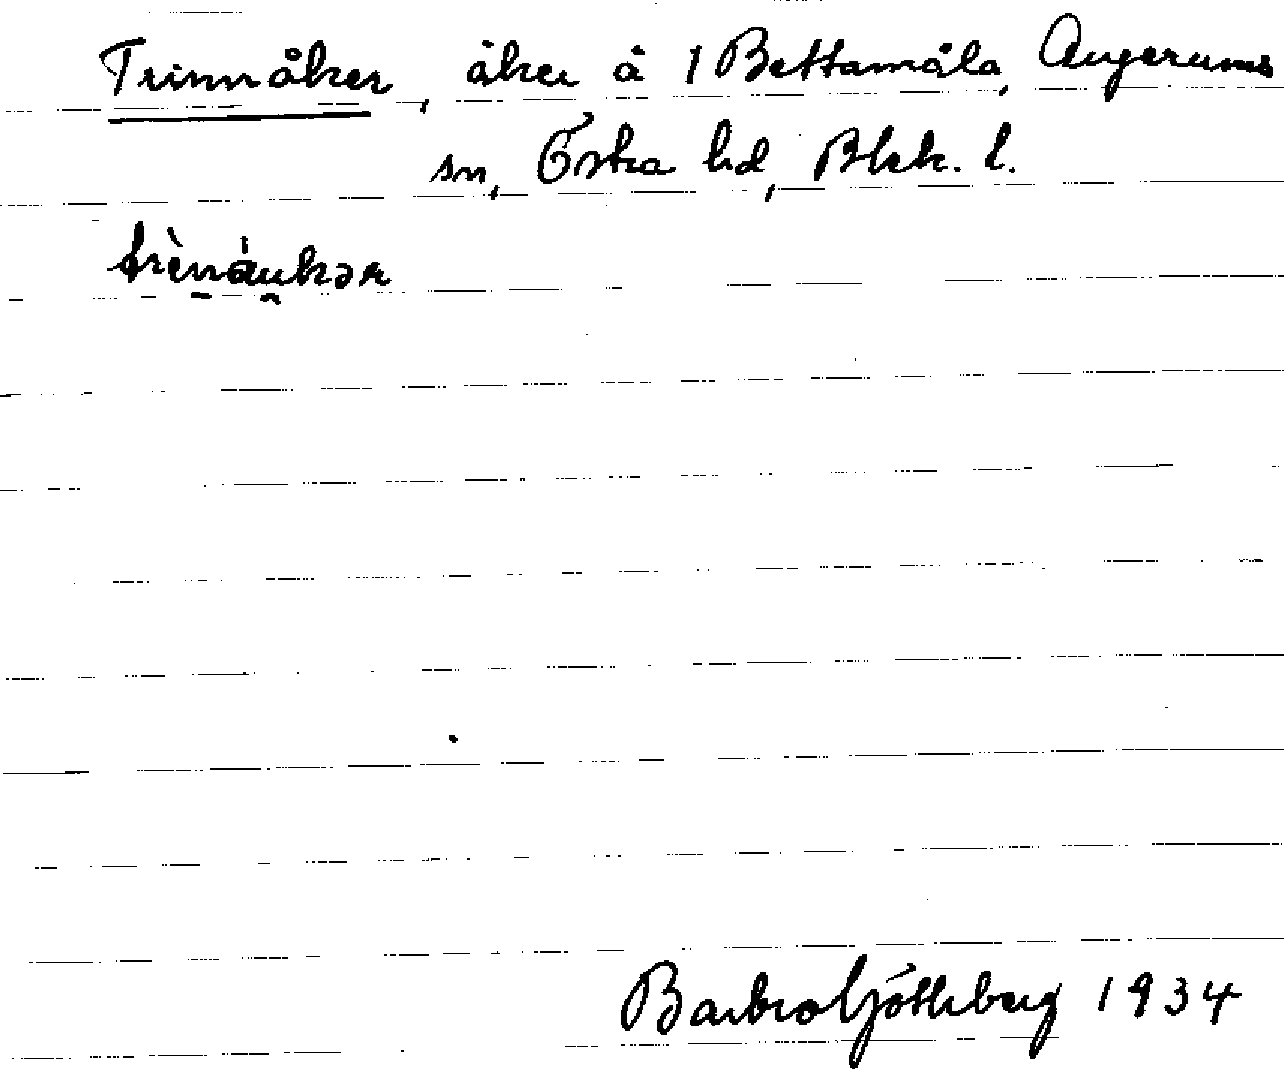 Trinnåker, åker å 1 Bettamåla, Augerums
sn, Östra hd, Blek. l.
trènáu̯kər
Barbro Götherberg 1934